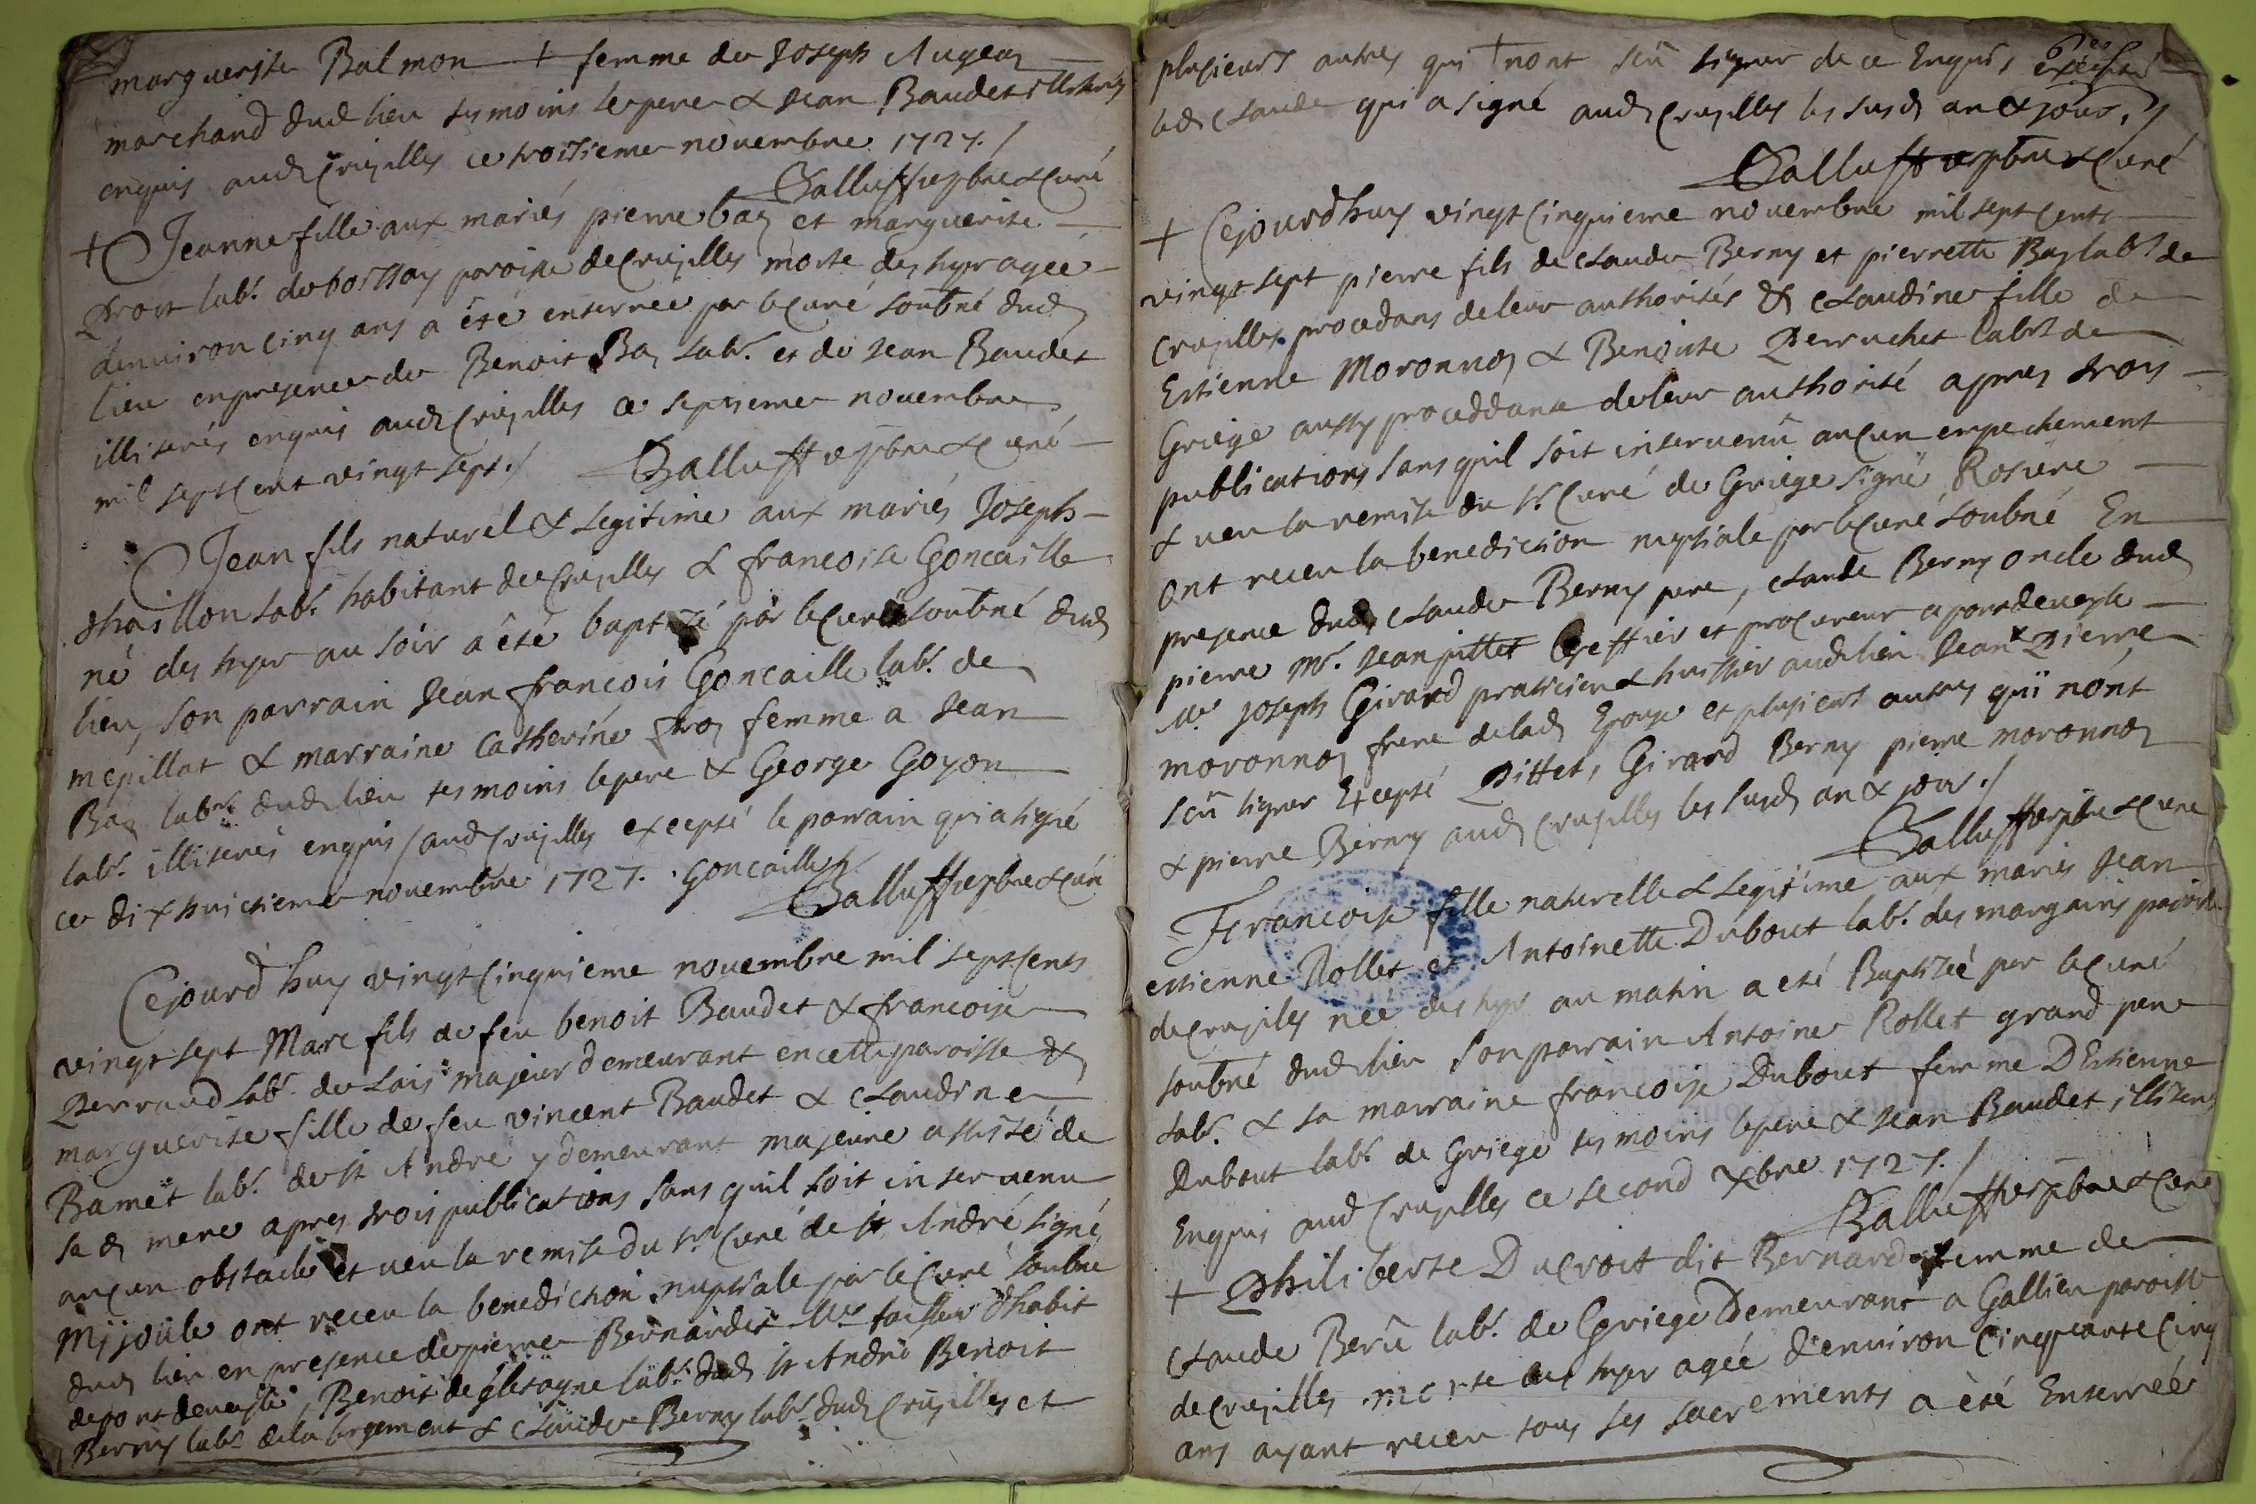 marguerite Balmon + femme de Joseph Augeay
marchand dud lieu tesmoins le pere & Jean Baudet illiterés
enquis aud Crusilles ce troisieme novembre 1727./
Galluffier pbre & curé
+ Jeanne fille aux mariés pierre bay et marguerite
labr. de boissay paroisse de Crusilles morte des hyer agée
denviron cinq ans a été enterrée par le Curé soubné dud
lieu en presence de Benoit Bay labr. et de Jean Baudet
illiterés enquis aud Crusilles ce septieme novembre
mil sept cent vingt sept./ Galluffier pbre & curé
Jean fils naturel & legitime aux mariés Joseph
Chaillon labr. habitant de Crusilles & francoise Goncaille
né des hyer au soir a été baptizé par le Curé soubné dud
lieu, son parrain Jean francois Goncaille labr. de
mepillat & marraine Catherine femme a Jean
Bay labr. dud lieu tesmoins le pere & George Goyon
labr. illiterés enquis / aud Crusilles excepté le parrain qui a signé
ce dixhuictieme novembre 1727. Goncaille
Galluffier pbre & curé
Cejourdhuy vingt Cinquieme novembre mil sept Cents
vingt sept Marc fils de feu benoit Baudet & francoise
Perraud labr. de Lais majeur demeurant en cette paroisse &
marguerite fille de feu vincent Baudet & Claudine
Bamet labr. de st André y demeurant majeure assistée de
sad mere apres trois publications sans quil soit intervenu
aucun obstacle et veu la remise du sr Curé de st André signé
Mijoüle ont receu la benediction nuptiale par le Curé soubné
dud lieu en presence de pierre Bernardet Me tailleur dhabit
de pont devesle, Benoit de gletagne labr. dud st André Benoit
Berny labr. de la & Claude Berny labr. dud Crusilles et
plusieurs autres qui nont sçu signer de ce Enquis excepté
led Claude qui a signé aud Crusilles les susd an & jour./
Galluffier pbre & curé
+ Cejourdhuy vingt Cinquieme novembre mil sept Cents
vingt sept pierre fils de Claude Berny et pierrette Bay labrs de
Crusilles procedans de leur authorités & Claudine fille de
Estienne Moronnoy & Benoiste Perruchet labrs de
Griege aussy proceddane de leur authorité apres trois
publications sans quil soit intervenu aucun empechement
& veu la remise du sr. Curé de Griege signé Rosiere
ont receu la benediction nuptiale par le Curé soubné En
presence dud Claude Berny pere, Claude Berny oncle dud
pierre Mr. Jean pittet Greffier et procureur a pontdevesle
Me Joseph Girard praticien & huissier aud lieu Jean Pierre
moronnoy frere de lad Epouse et plusieurs autres qui nont
sçu signer Excepté Pittet, Girard Berny pierre moronnoy
& pierre Berny aud Crusilles les susd an & jour./
Galluffier pbre & curé
Francoise fille naturelle & legitime aux mariés Jean
estienne Rollet et Antoinette Dubout labr. des mangains paroisse
de Crusilles née des hyer au matin a eté Baptizée par le Curé
soubné dud lieu son parrain Antoine Rollet grand pere
labr. & sa marraine francoise Dubout femme DEstienne
Dubout labr. de Griege tesmoins le pere & Jean Baudet illiterés
Enquis aud Crusilles ce second xbre 1727./
Galluffier pbre & curé
+ Philiberte Ducroit dit Bernard femme de
Claude Berü labr. de Griege Demeurant a Gallien paroisse
de Crusilles morte des hyer agée d'environ Cinquante Cinq
ans ayant receu tous ses sacrements a été Enterrée